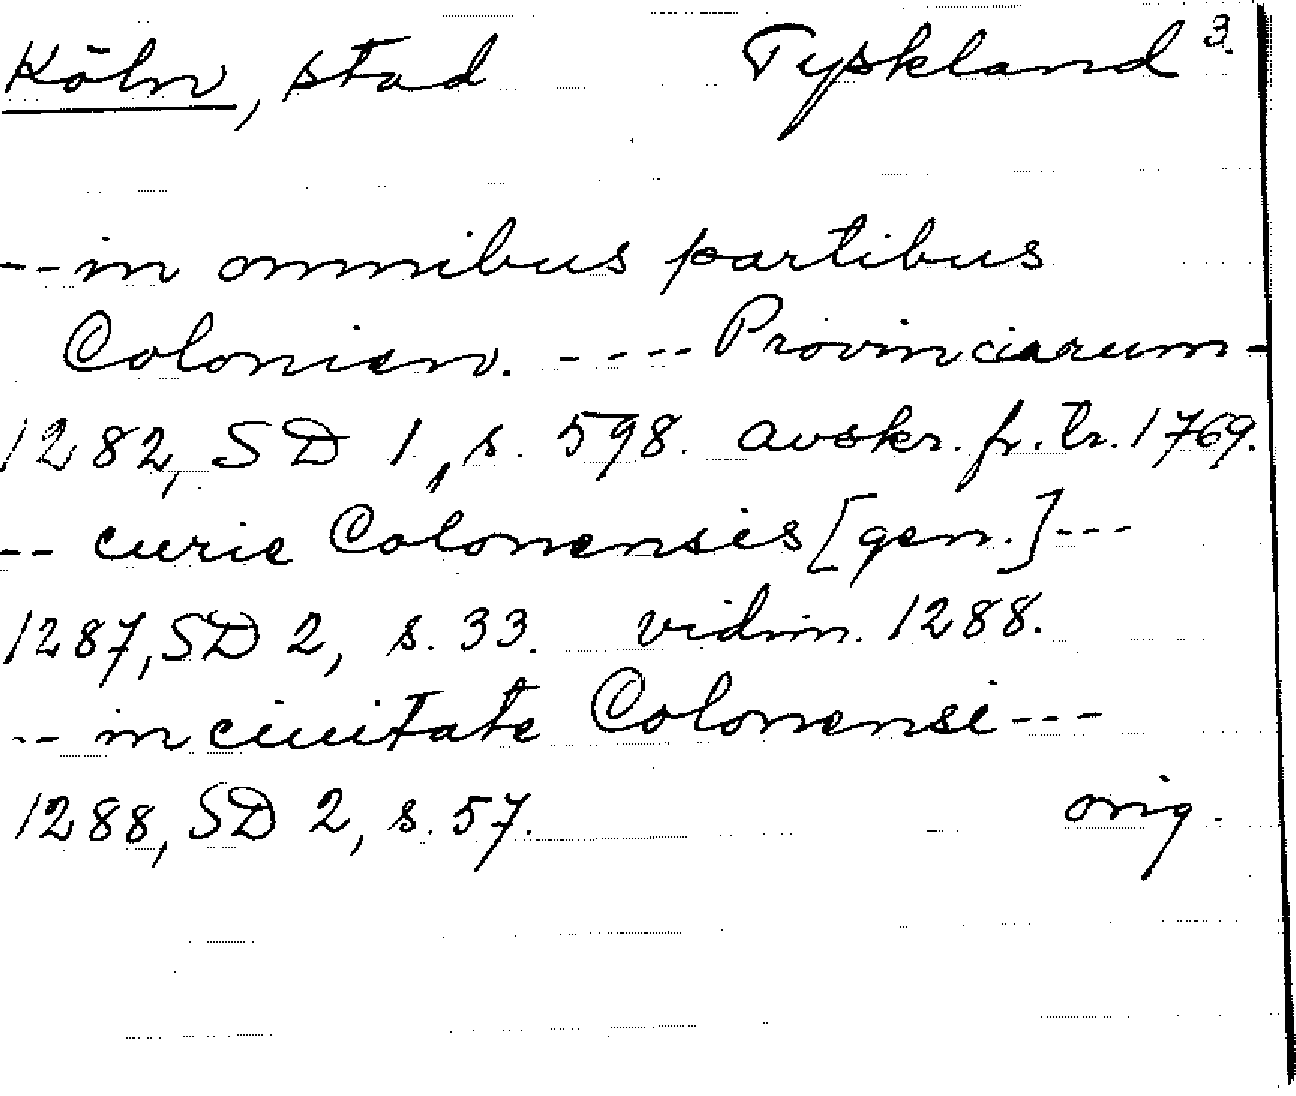 Köln, stad Tyskland 3.
-- in omnibus partibus
Colonien. ---- Provinciarum-
1282, SD 1, s. 598. avskr. fr. tr. 1769.
-- curie Colonensis [gen.] ---
1287, SD 2, s. 33. vidim. 1288.
-- in ciuitate Colonensi ---
1288, SD 2, s. 57. orig.